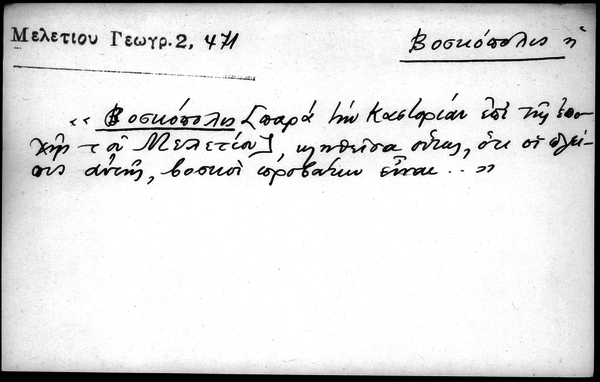 Μελετίου Γεωγρ. 2, 471
Βοσκόπολις ἡ
« Βοσκόπολις [παρὰ τὴν Καστορίαν ἐπὶ τῆς ἐπο-
χῆς τοῦ Μελετίου], κληθεῖσα οὕτως, ὅτι οἱ πλεῖ-
στοι αὐτῆς, βοσκοὶ προβάτων εἶναι . . »